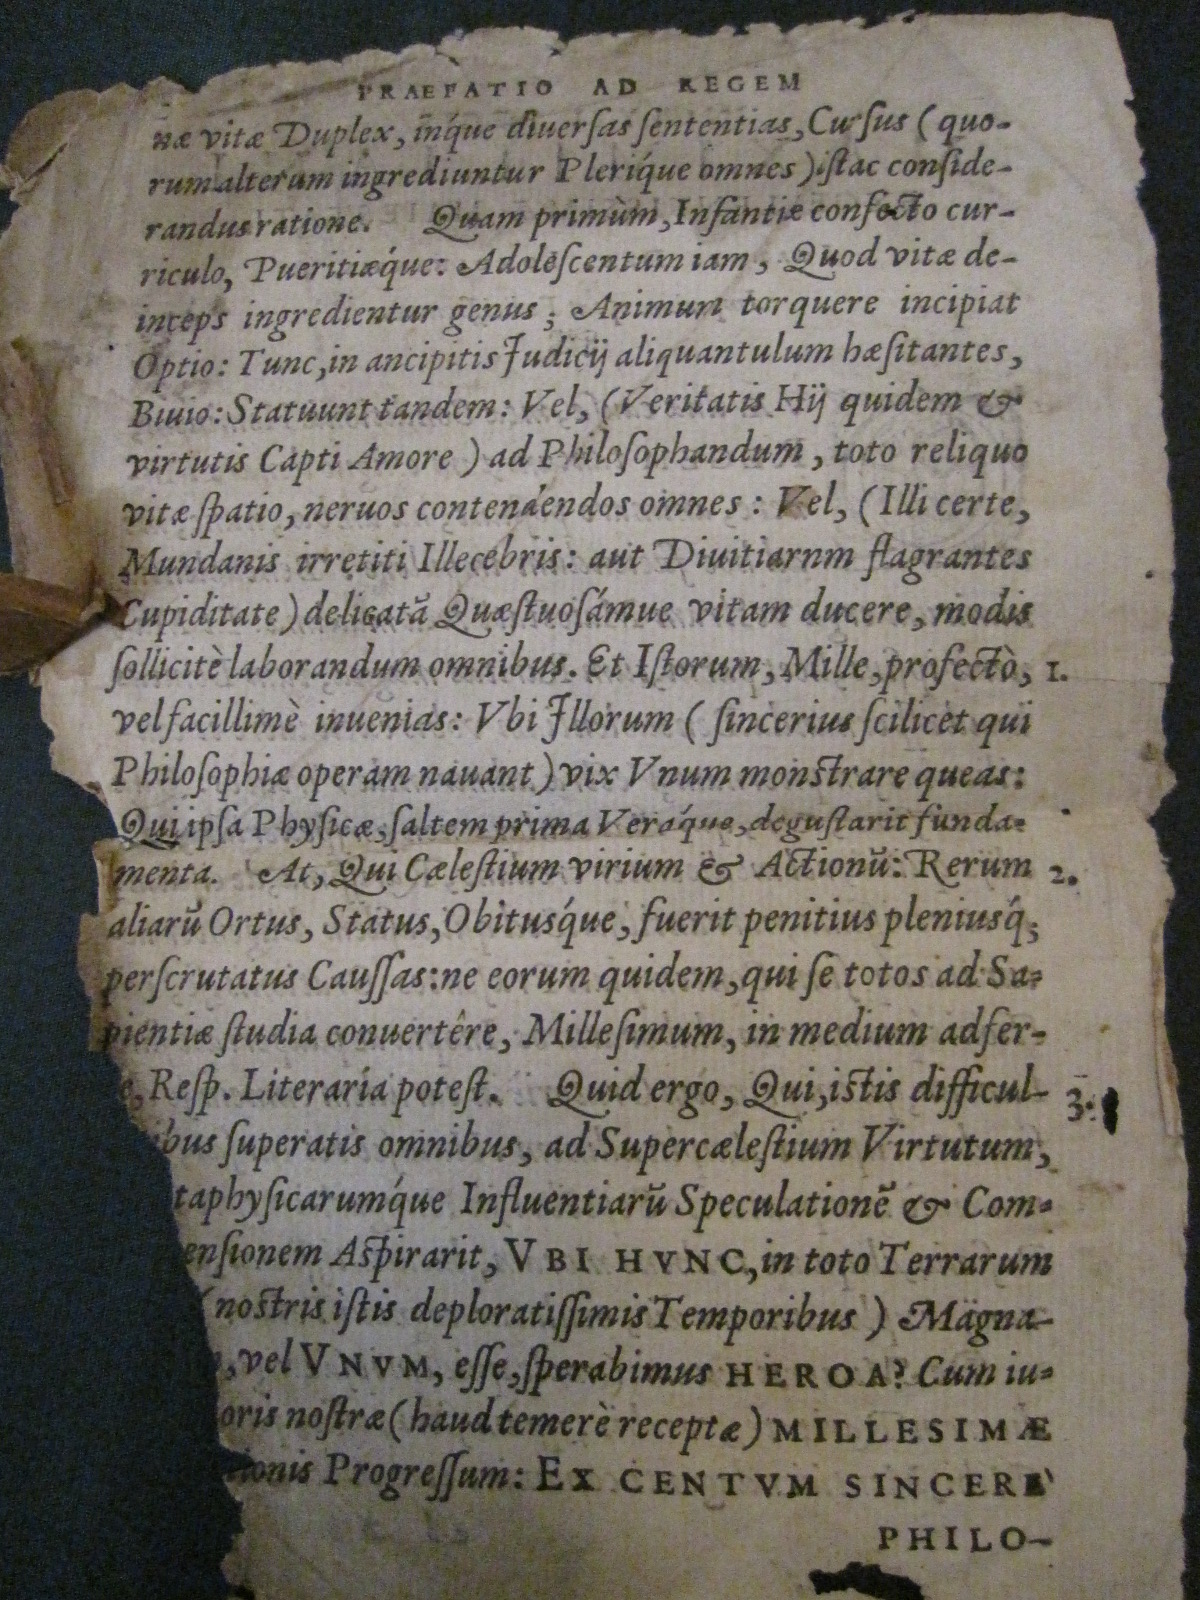 PRAEFATIO AD REGEM
næ vitæ Duplex, inq́ue diuersas sententias, Cursus ( quo-
rum alterum ingrediuntur Pleriq́ue omnes ) istac conside-
randus ratione. Quam primùm, Infantiæ confecto cur-
riculo, Pueritiæq́ue: Adolescentum iam, Quod vitæ de-
inceps ingredientur genus; Animum torquere incipiat
Optio: Tunc, in ancipitis Judicij aliquantulum hæsitantes,
Biuio: Statuunt tandem: Vel, (Veritatis Hij quidem &
virtutis Capti Amore ) ad Philosophandum, toto reliquo
vitæ spatio, neruos contendendos omnes : Vel, (Illi certe,
Mundanis irretiti Illecebris: aut Diuitiarnm flagrantes
Cupiditate ) delicatā Quæstuosámue vitam ducere, modis
sollicitè laborandum omnibus. Et Istorum, Mille, profectò, 1.
vel facillimè inuenias: Vbi Jllorum ( sincerius scilicet qui
Philosophiæ operam nauant ) vix Vnum monstrare queas:
Qui ipsa Physicæ, saltem prima Veráque, degustarit funda-
menta. At, Qui Cælestium virium & Actionū: Rerum 2.
aliarū Ortus, Status, Obitusq́ue, fuerit penitius pleniusq́;
perscrutatus Caussas: ne eorum quidem, qui se totos ad Sa-
pientiæ studia conuertêre, Millesimum, in medium adfer-
e, Resp. Literaria potest. Quid ergo, Qui, istis difficul- 3.
ibus superatis omnibus, ad Supercælestium Virtutum,
taphysicarumq́ue Influentiarū Speculationē & Com-
ensionem Aspirarit, VBI HVNC, in toto Terrarum
( nostris istis deploratissimis Temporibus ) Magna-
, vel VNVM, esse, sperabimus HEROA? Cum iu-
oris nostræ ( haud temerè receptæ ) MILLESIMÆ
tionis Progressum: EX CENTVM SINCERE`
PHILO-